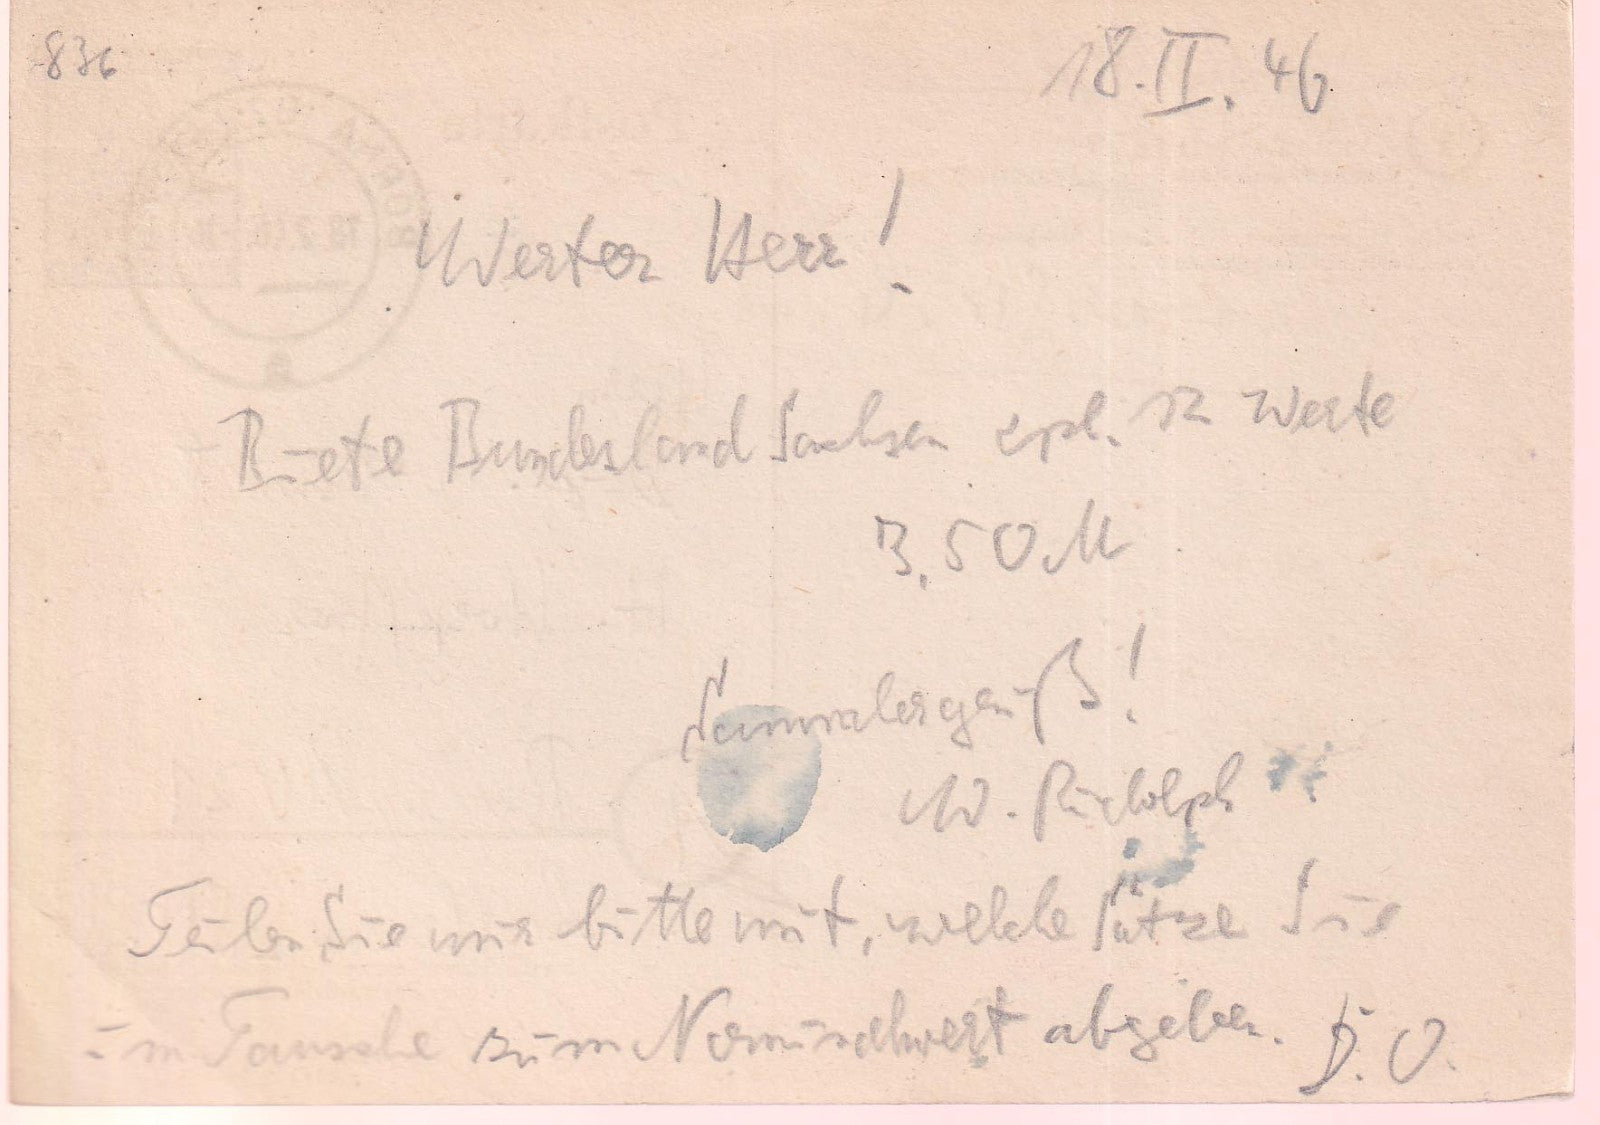 836
18.II.46
Werter Herr!
Biete Bundesland Sachsen kpl. 12 Werte
3,50 M
Sammlergruß!
W. Rudolph
Teilen Sie mir bitte mit, welche Sätze Sie
im Tausche zum Nominalwert abgeben. D.O.